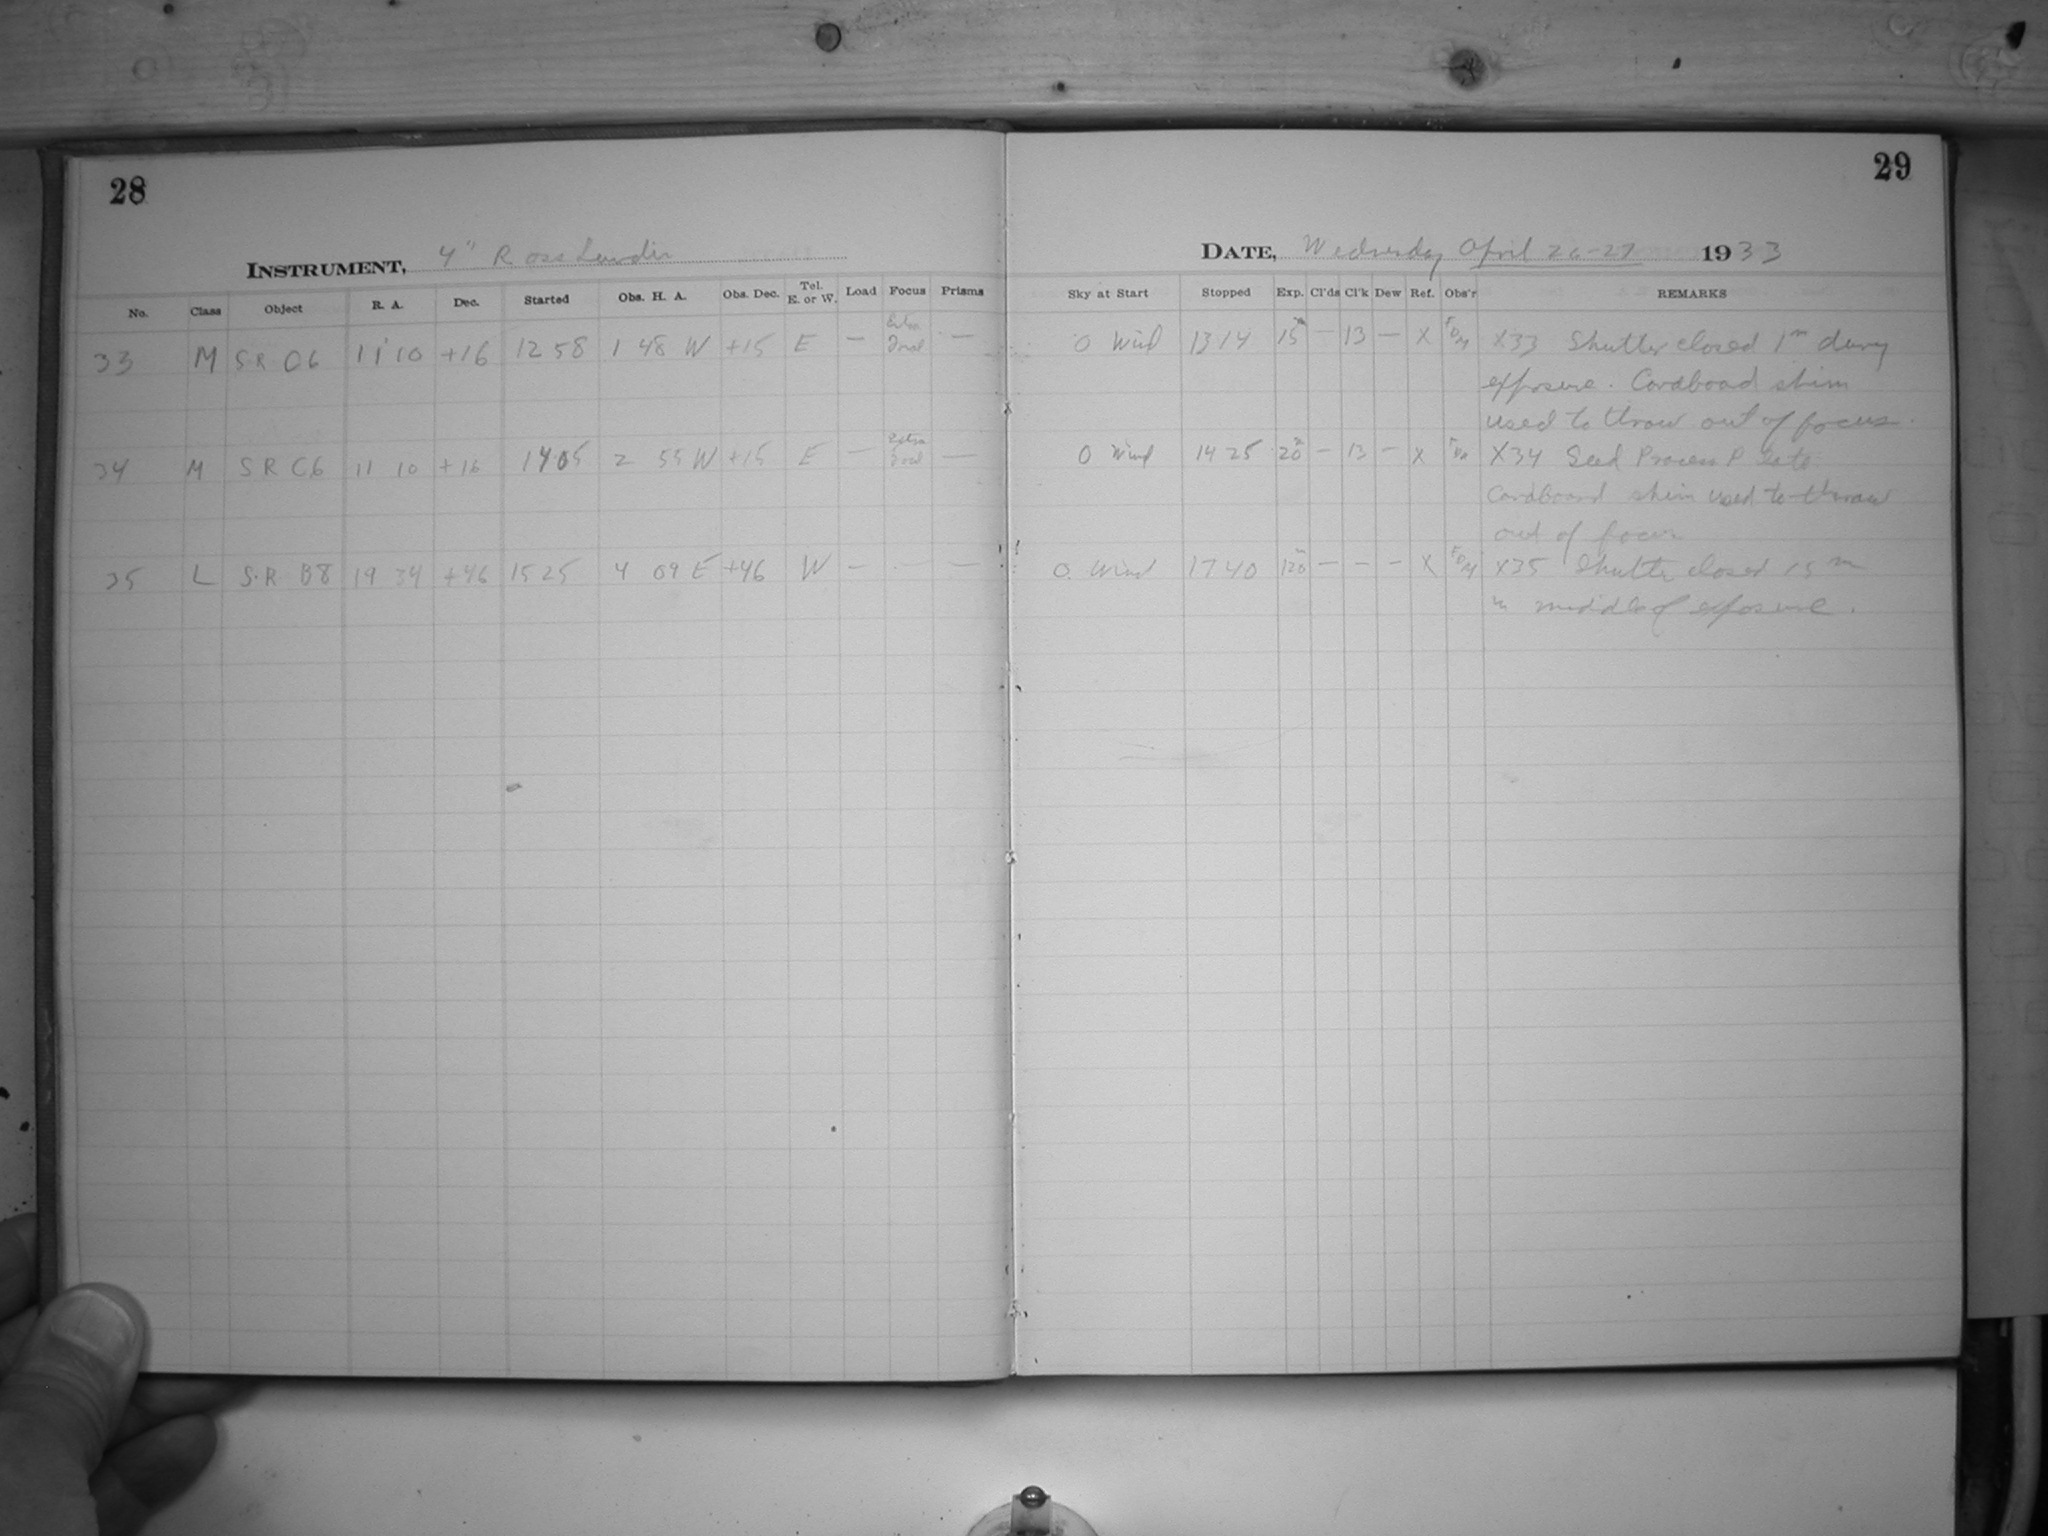 28
INSTRUMENT, 4" Ross Lundin
No. Class Object R. A. Dec. Started Obs. H. A. Obs. Dec. Tel. E. or W. Load Focus Prisms
33 M S R C6 11 10 +16 12 58 1 48 W +15 E — Extra Focal —
34 M S R C6 11 10 +16 14 05 2 55 W +15 E — Extra Focal —
35 L S.R B8 19 34 +46 15 25 4 09 E +46 W — — —
29
DATE, Wednesday April 26-27 1933
Sky at Start Stopped Exp. Cl'ds Cl'k Dew Ref. Obs'r REMARKS
0 Wind 13 14 15m — 13 — X X33 Shutter closed 1m during
exposure. Cardboard shim
used to throw out of focus.
0 Wind 14 25 20m — 13 — X X34 Seed Process Plate
Cardboard shim used to throw
out of focus
0. Wind 17 40 120m — — — X X35 Shutter closed 15m
in middle of exposure.